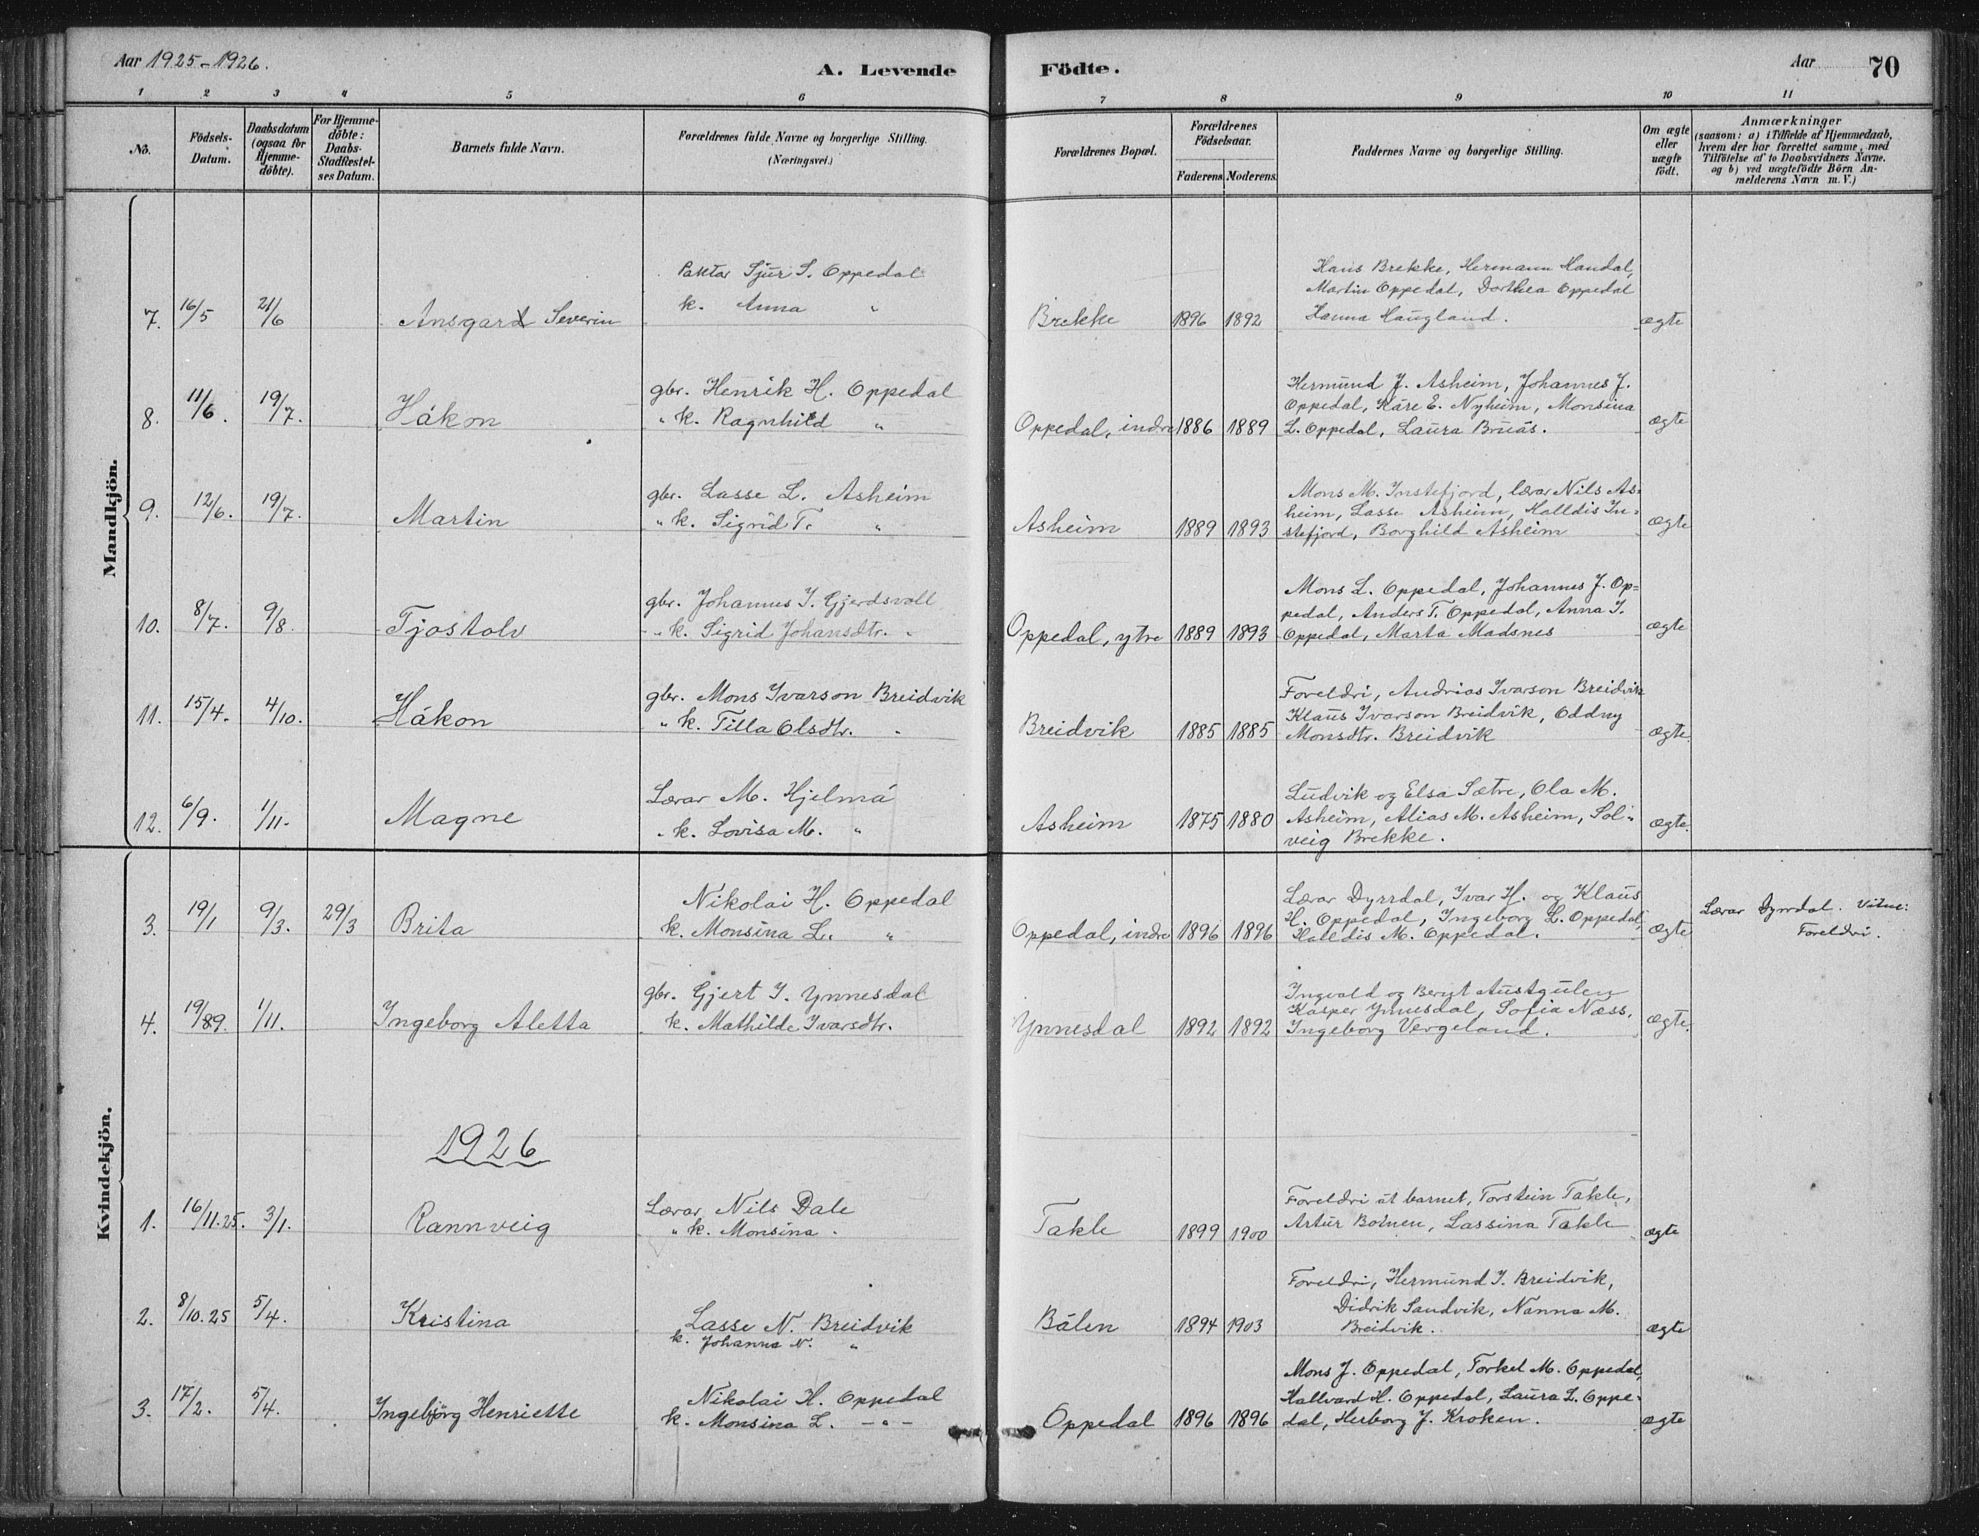 Aar 1925-1926.
A. Levende Födte.
Aar 70
1 2 3 4 5 6 7 8 9 10 11
No.
Födsels-
Datum.
Daabsdatum
(ogsaa for
Hjemme-
döbte).
For Hjemme-
döbte:
Daabs-
Stadfæstel-
ses Datum.
Barnets fulde Navn.
Forældrenes fulde Navne og borgerlige Stilling.
(Næringsvei.)
Forældrenes Bopæl.
Forældrenes
Födselsaar.
Faderens. Moderens.
Faddernes Navne og borgerlige Stilling.
Om ægte
eller
uægte
födt.
Anmærkninger
(saasom: a) i Tilfælde af Hjemmedaab,
hvem der har forrettet samme, med
Tilföielse af to Daabsvidners Navne.
og b) ved uægtefödte Börn An-
melderens Navn m. V.)
Mandkjön.
7. 16/5 21/6 Ansgard Severin
Sjur S. Oppedal
k. Anna "
Brekke 1896 1892
Hans Brekke, Hermann Handal,
Martin Oppedal, Dorthea Oppedal
Hanna Haugland.
ægte
8. 11/6. 19/7. Håkon
gbr. Henrik H. Oppedal
" k. Ragnhild "
Oppedal, indre 1886 1889
Hermund J. Asheim, Johannes J.
Oppedal, Kåre E. Nyheim, Monsina
L. Oppedal, Laura Bruås.
ægte
9. 12/6. 19/7. Martin
gbr. Lasse L. Asheim
" k. Sigrid T. "
Asheim 1889 1893
Mons M. Instefjord, lærar Nils As-
heim, Lasse Asheim, Halldis In-
stefjord, Borghild Asheim
ægte
10. 8/7. 9/8. Tjostolv
gbr. Johannes I. Gjerdsvoll
" k. Sigrid Johansdtr. "
Oppedal, ytre 1889 1893
Mons L. Oppedal, Johannes J. Op-
pedal, Anders T. Oppedal, Anna I.
Oppedal, Marta Madsnes
ægte
11. 15/4. 4/10. Håkon
gbr. Mons Ivarson Breidvik
" k. Tilla Olsdtr. "
Breidvik 1885 1885
Foreldri, Andrias Ivarson Breidvik
Klaus Ivarson Breidvik, Oddny
Monsdtr. Breidvik
ægte.
12. 6/9. 1/11. Magne
Lærar M. Hjelmå
" k. Lovisa M. "
Asheim 1875 1880
Ludvik og Elsa Sætre, Ola M.
Asheim, Alias M. Asheim, Sol-
veig Brekke.
ægte.
Kvindekjön.
3. 19/1 9/3. 29/3 Brita
Nikolai H. Oppedal
k. Monsina L. "
Oppedal, indre 1896 1896
Lærar Dyrrdal, Ivar H. og Klaus
H. Oppedal, Ingeborg L. Oppedal,
Halldis M. Oppedal.
ægte
Lærar Dyrrdal. Vitne:
Foreldri.
4. 19/89. 1/11. Ingeborg Aletta
gbr. Gjert I. Ynnesdal
k. Mathilde Ivarsdtr.
Ynnesdal 1892 1892
Ingvald og Beryt Austgulen
Kasper Ynnesdal, Sofia Næss,
Ingeborg Vergeland.
ægte.
1926
1. 16/11.25. 3/1. Rannveig
Lærar Nils Dale
" k. Monsina "
Takle 1899 1900
Foreldri åt barnet, Torstein Takle,
Artur Botnen, Lassina Takle
ægte
2. 8/10.25 5/4. Kristina
Lasse N. Breidvik
k. Johanna N. "
Bålen 1894 1903
Foreldri, Hermund I. Breidvik,
Didrik Sandvik, Nanna M.
Breidvik.
ægte
3. 17/2. 5/4. Ingebjørg Henriette
Nikolai H. Oppedal
k. Monsina L. - " -
Oppedal 1896 1896
Mons J. Oppedal, Torkel M. Oppedal,
Hallvard H. Oppedal, Laura L. Oppe-
dal, Herborg J. Kroken.
ægte